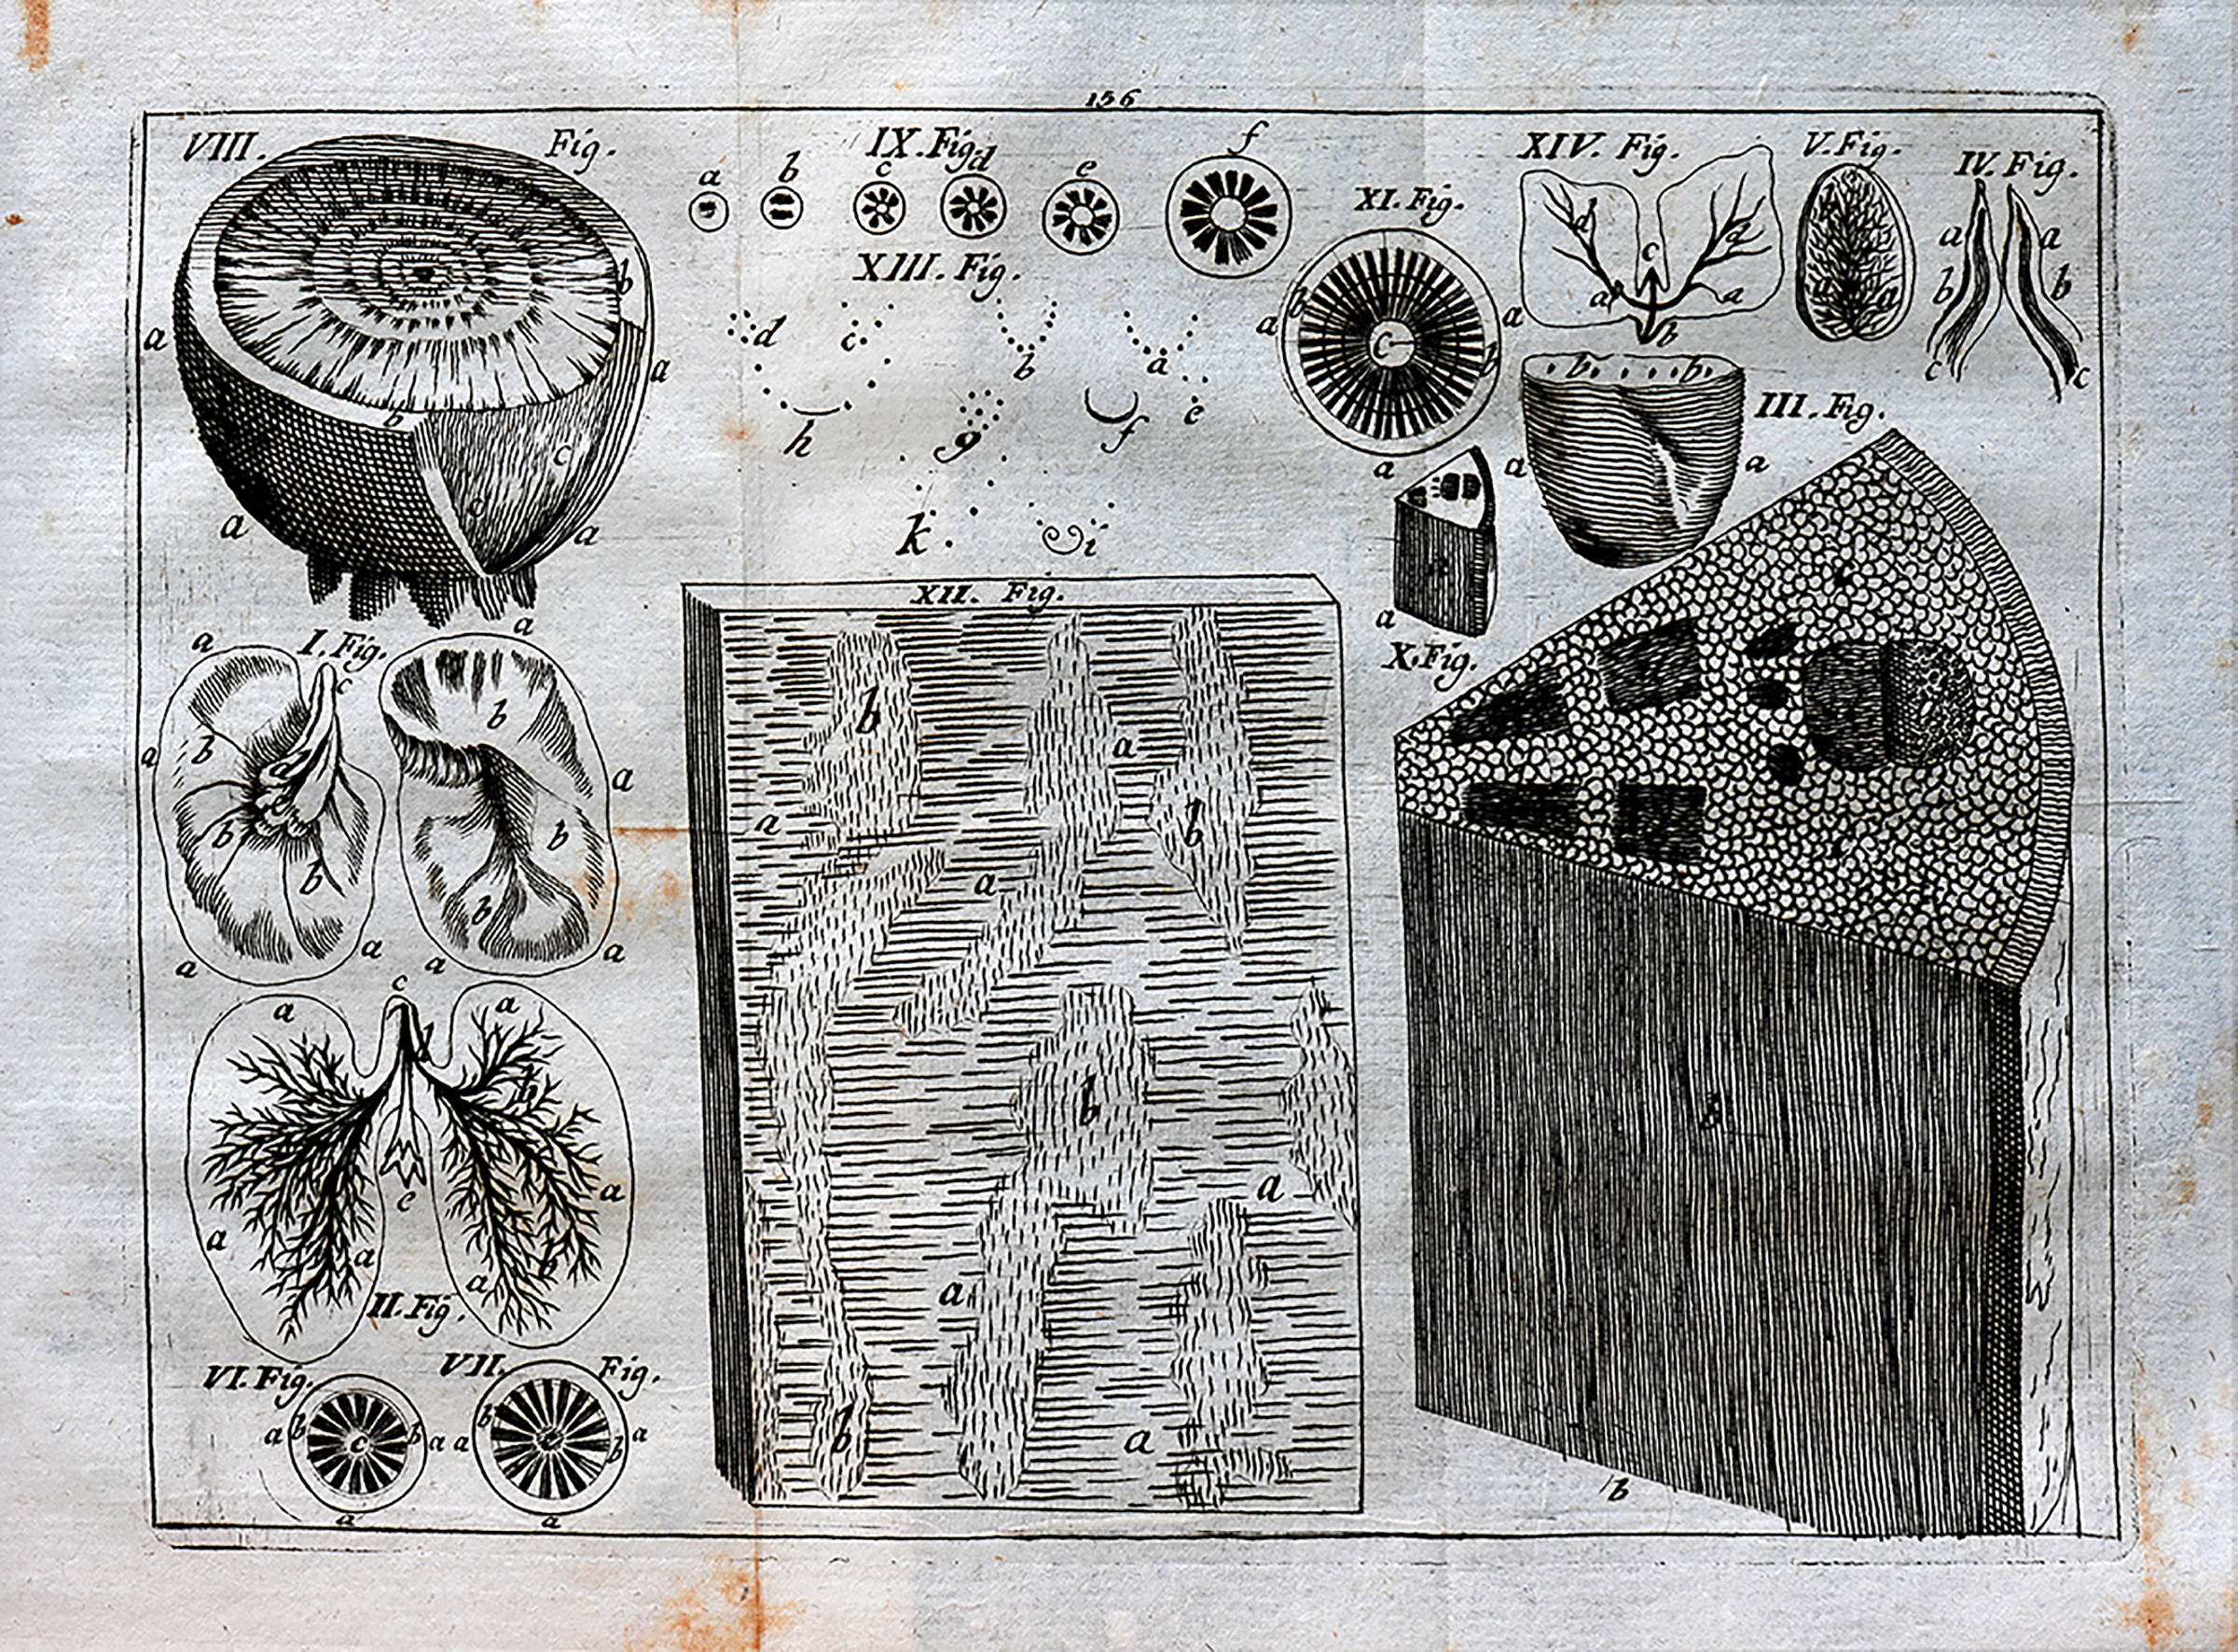 156
VIII. Fig.
a
b
a
a
b
c
c
a
a
IX. Fig.
a
b
c
d
e
f
XIII. Fig.
d
c
b
a
h
g
f
e
k
i
XI. Fig.
a
b
a
c
b
a
XIV. Fig.
d
d
c
a
a
b
V. Fig.
a
a
IV. Fig.
a
a
b
b
c
c
III. Fig.
b
b
a
a
X. Fig.
a
b
b
I. Fig.
a
a
c
b
b
a
a
b
e
b
b
b
b
a
a
a
a
II. Fig.
c
a
a
d
b
e
a
a
a
a
b
VI. Fig.
a
b
c
b
a
a
VII. Fig.
a
b
c
b
a
a
XII. Fig.
b
a
a
b
a
b
a
a
b
a